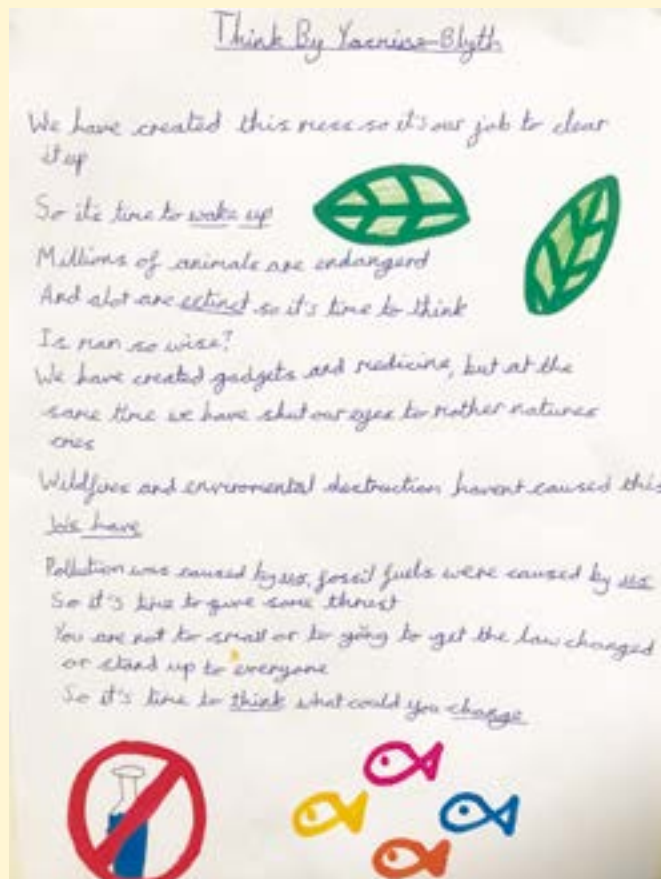 Think By Blyth
We have created this mess so it's our job to clear
it up
So it's time to wake up
Millions of animals are endangerd
And alot are extinct so it's time to think
Is man so wise?
We have created gadgets and medicine, but at the
same time we have shut our eyes to mother natures
cries
Wildfires and enviromental destruction havent caused this
We have
Pollution was caused by us, fossil fuels were caused by us
So it's time to give some thrust
You are not to small or to yong to get the law changed
or stand up to everyone
So it's time to think what could you change